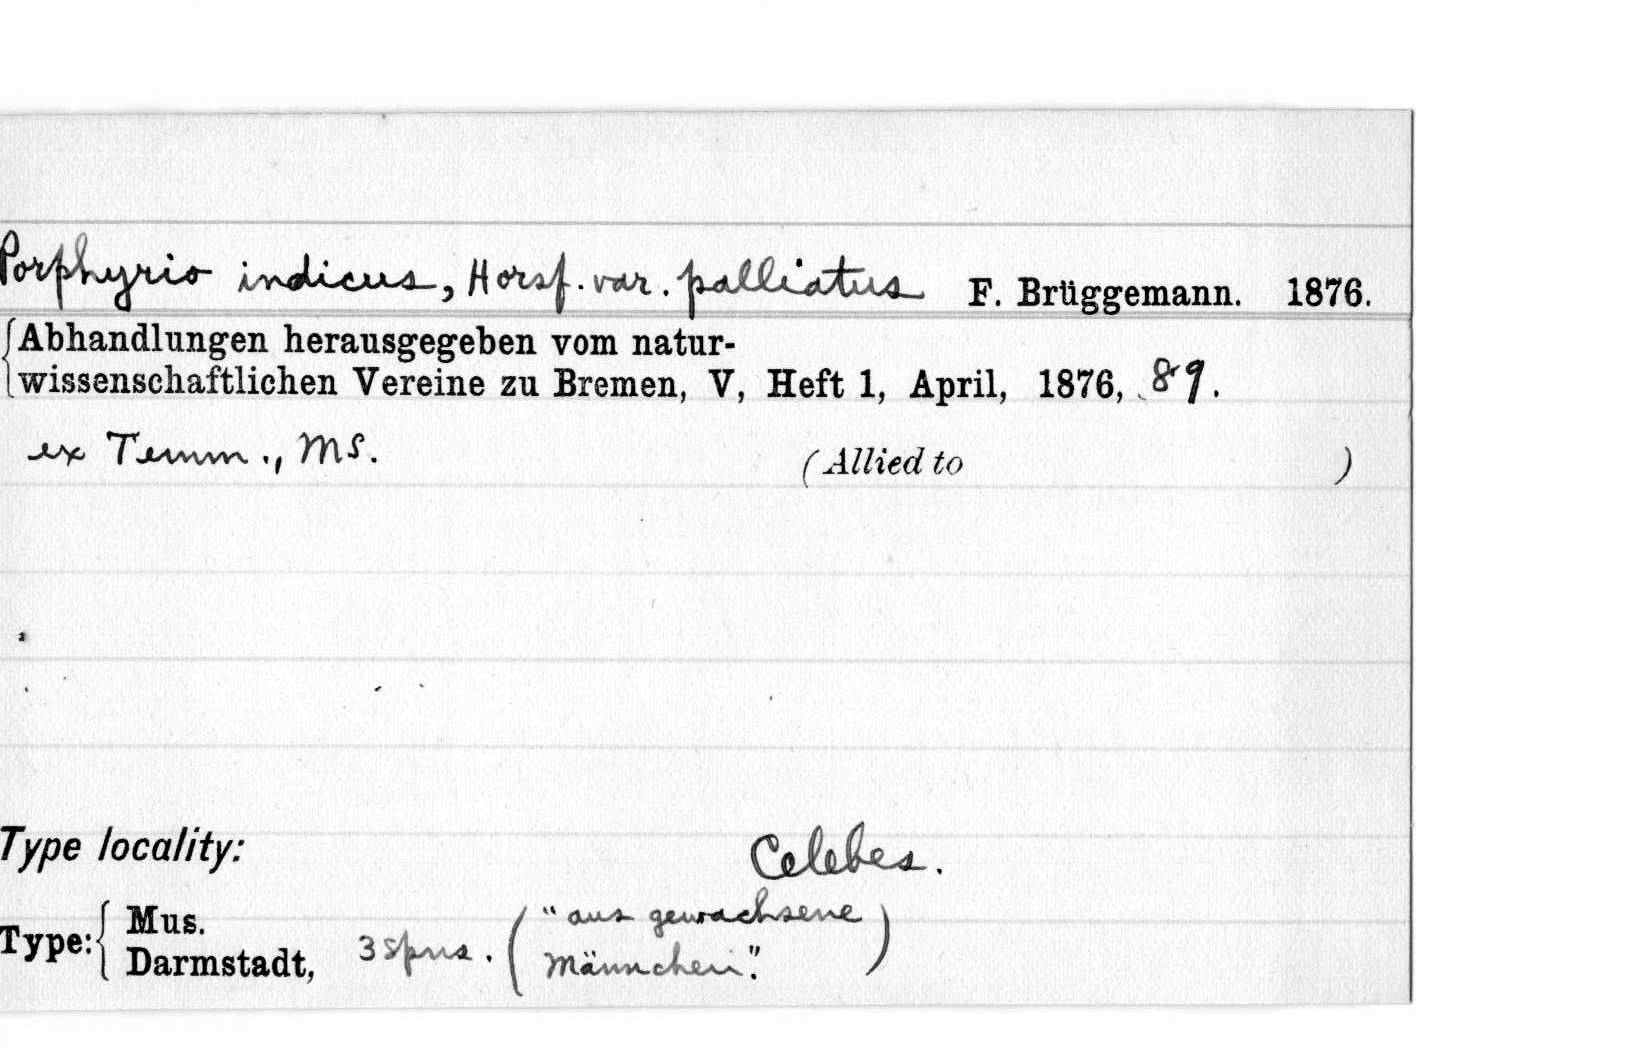 Porphyrio indicus, Horsf. var. palliatus F. Brüggemann. 1876.
Abhandlungen herausgegeben vom natur-
wissenschaftlichen Vereine zu Bremen, V, Heft 1, April, 1876, 89.
ex Temm., MS. (Allied to )
Type locality: Celebes.
Type: Mus. Darmstadt, 3 spns. ("aus gewachsene
Männchen".)